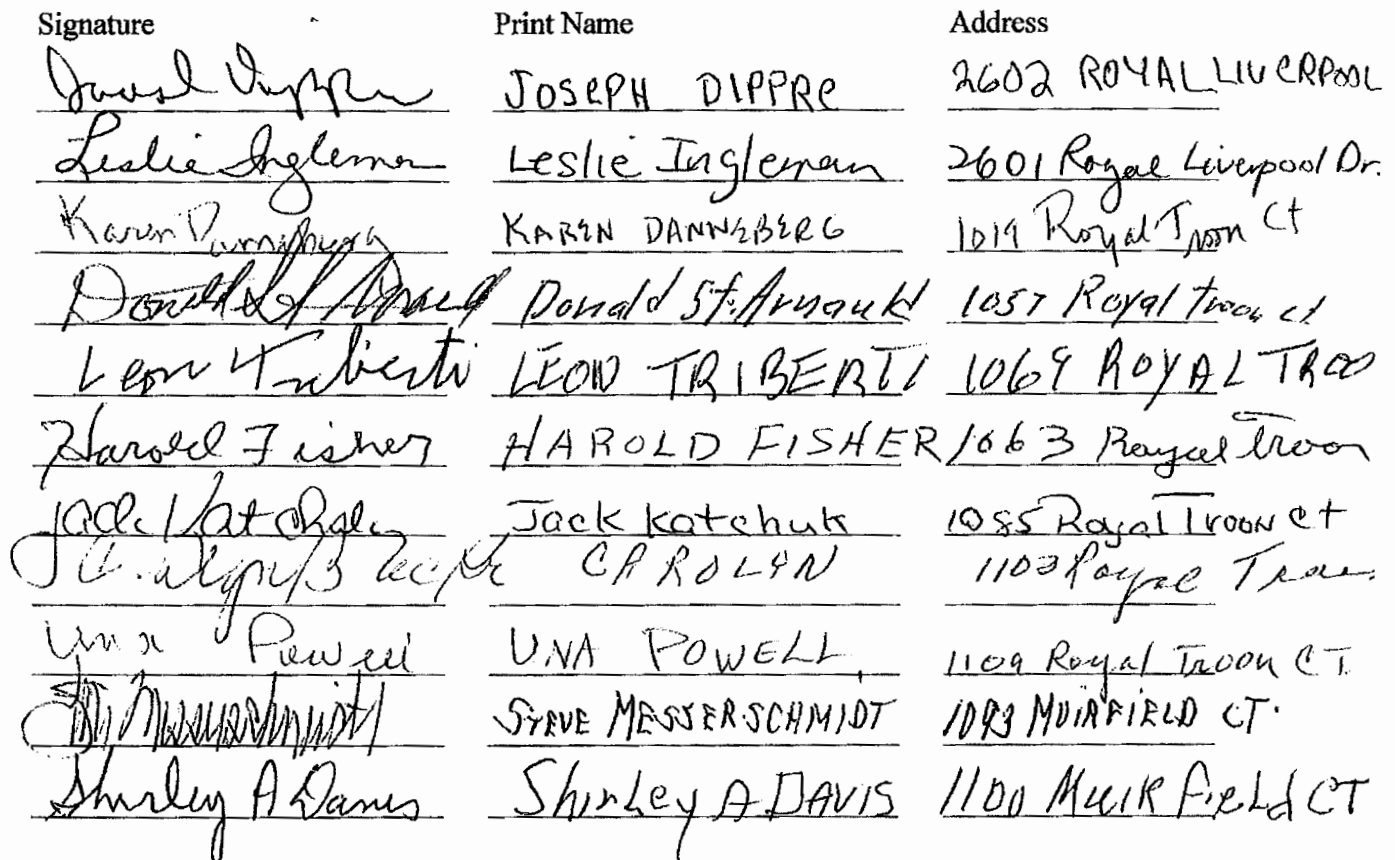 Signature Print Name Address
Joseph Dippre JOSEPH DIPPRE 2602 ROYAL LIVERPOOL
Leslie Ingleman Leslie Ingleman 2601 Royal Liverpool Dr.
Karen Danneberg KAREN DANNEBERG 1019 Royal Troon Ct
Donald St. Arnauld Donald St. Arnauld 1057 Royal troon ct
Leon Triberti LEON TRIBERTI 1069 ROYAL TROO
Harold Fisher HAROLD FISHER 1063 Royal Troon
Jack Katchuk Jack Katchuk 1085 Royal Troon Ct
Carolyn CAROLYN Royal Troon
Una Powell UNA POWELL 1109 Royal Troon CT
Messerschmidt STEVE MESSERSCHMIDT 1093 MUIRFIELD CT.
Shirley A Davis Shirley A DAVIS 1100 Muirfield CT